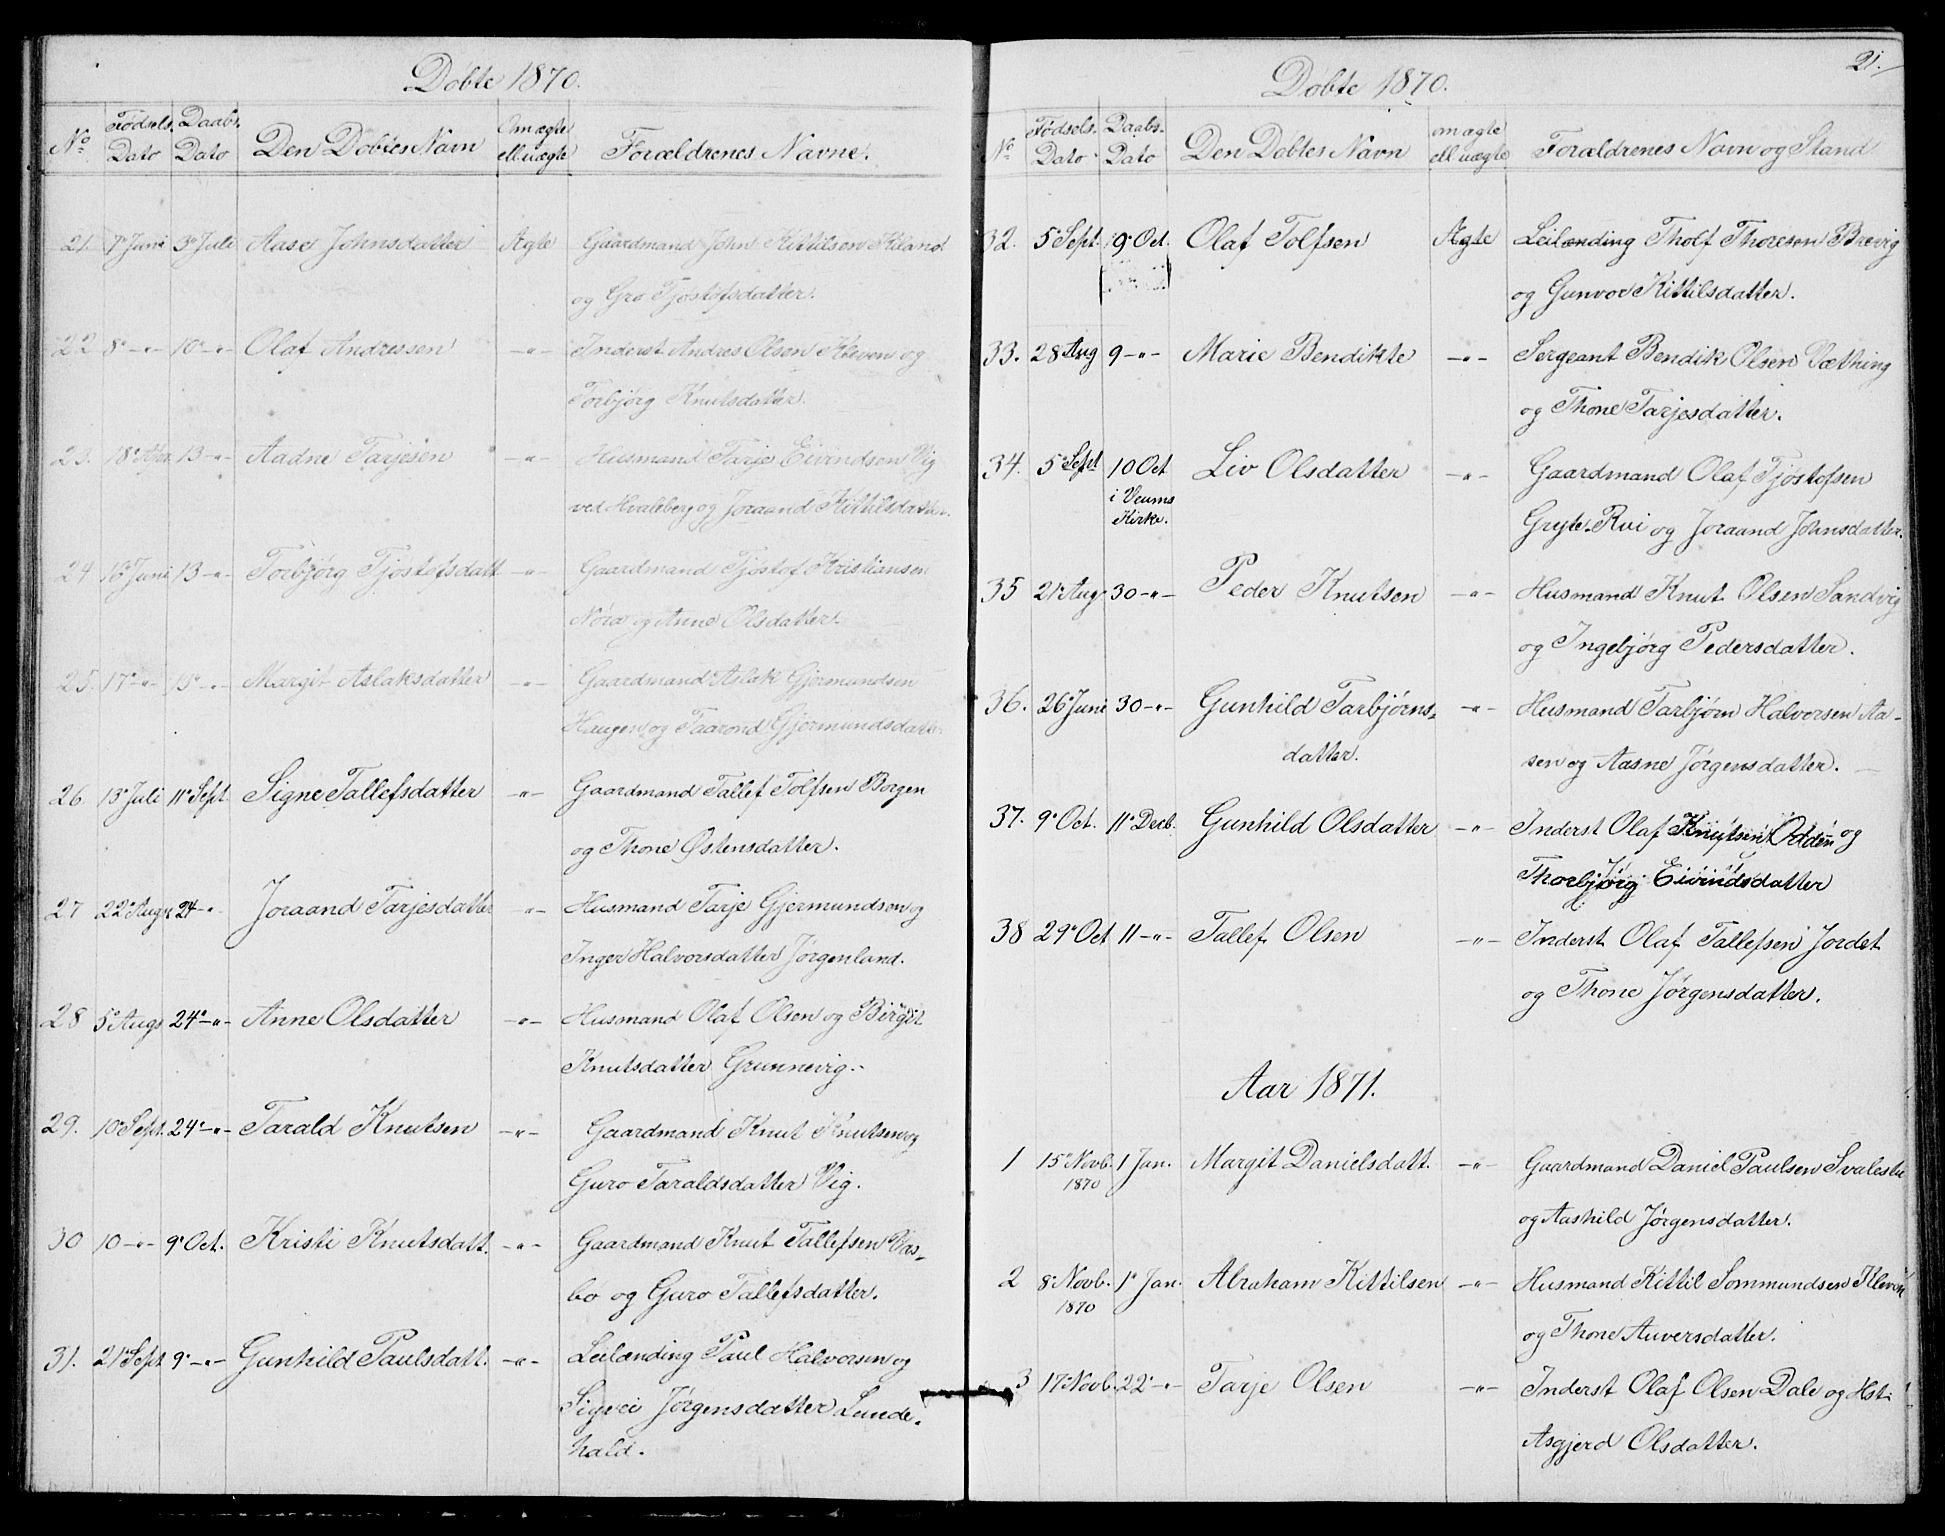 Døbte 1870.
No Fødsels Dato Daabs. Dato Den Døbtes Navn Om ægte ell uægte Forældrenes Navne.
21. 7de Juni 3die Juli Aase Johnsdatter Ægte Gaardmand John Kittilsen Kiland
og Gro Tjøstofsdatter.
22 8de -"- 10de -"- Olaf Andressen -"- Inderst Andres Olsen Kleven og
Torbjørg Knutsdatter.
23. 18de 13 -"- Aadne Tarjesen -"- Husmand Tarje Eivindsen Vig
ved Hvaleberg og Joraand Kittilsdatter.
24 16de Juni 13 -"- Torbjørg Tjøstofsdatt -"- Gaardmand Tjøstof Kristiansen
og Anne Olsdatter.
25. 17de -"- -"- Margit Aslaksdatter -"- Gaardmand Aslak Gjermundsen
Haugen og Taarond Gjermundsdatter
26. 13de Juli 11te Sept. Signe Tallefsdatter -"- Gaardmand Tallef Tolfsen Borgen
og Thone Østensdatter.
27 22de Augs 24 -"- Joraand Tarjesdatter -"- Husmand Tarje Gjermundsen og
Inger Halvorsdatter Jørgenland.
28 5te Augs 24de -"- Anne Olsdatter -"- Husmand Olaf Olsen og Birgit
Knutsdatter Grunnevig.
29. 10de Sept. 24de -"- Tarald Knutsen -"- Gaardmand Knut Knutsen og
Guro Taraldsdatter Vig.
30 10 -"- 9de Oct. Kristi Knutsdatt. -"- Gaardmand Knut Tallefsen Vas-
bø og Guro Tallefsdatter.
31. 21de Sept 9de -"- Gunhild Paulsdatt. -"- Leilænding Paul Halvorsen og
Sigvei Jørgensdatter Lunde-
hald.
21.
Døbte 1870.
No Fødsels. Dato Daabs- Dato Den Døbtes Navn om ægte ell uægte Forældrenes Navn og Stand
32. 5te Sept. 9de Oct. Olaf Tolfsen Ægte Leilænding Tholf Thoresen Brevig
og Gunvor Kittilsdatter.
33. 28 Aug 9 -"- Marie Bendikte -"- Sergeant Bendik Olsen Vætning
og Thone Tarjesdatter.
34. 5te Sept 10 Oct i Veums Kirke. Liv Olsdatter -"- Gaardmand Olaf Tjøstofsen
Gryte-Rui og Joraand Johnsdatter.
35 21de Aug 30 -"- Peder Knutsen -"- Husmand Knut Olsen Sandvig
og Ingebjørg Pedersdatter.
36. 26de Juni 30 -"- Gunhild Tarbjørns- datter. -"- Husmand Tarbjørn Halvorsen Aa-
sen og Aasne Jørgensdatter.
37. 9de Oct. 11te Decb. Gunhild Olsdatter -"- Inderst Olaf Knutsen Odden og
Thorbjørg Eivindsdatter
38 29de Oct 11 -"- Tallef Olsen -"- Inderst Olaf Tallefsen Jordet
og Thone Jørgensdatter.
Aar 1871.
1 15de Novb. 1870 1 Jan. Margit Danielsdatt. -"- Gaardmand Daniel Paulsen Svalestu
og Aashild Jørgensdatter.
2 8de Novb. 1870 1ste Jan. Abraham Kittilsen -"- Husmand Kittil Sommundsen Kleven
og Thone Anversdatter.
3 17de Novb. 22de -"- Tarje Olsen -"- Inderst Olaf Olsen Dale og Hst:
Asgjerd Olsdatter.